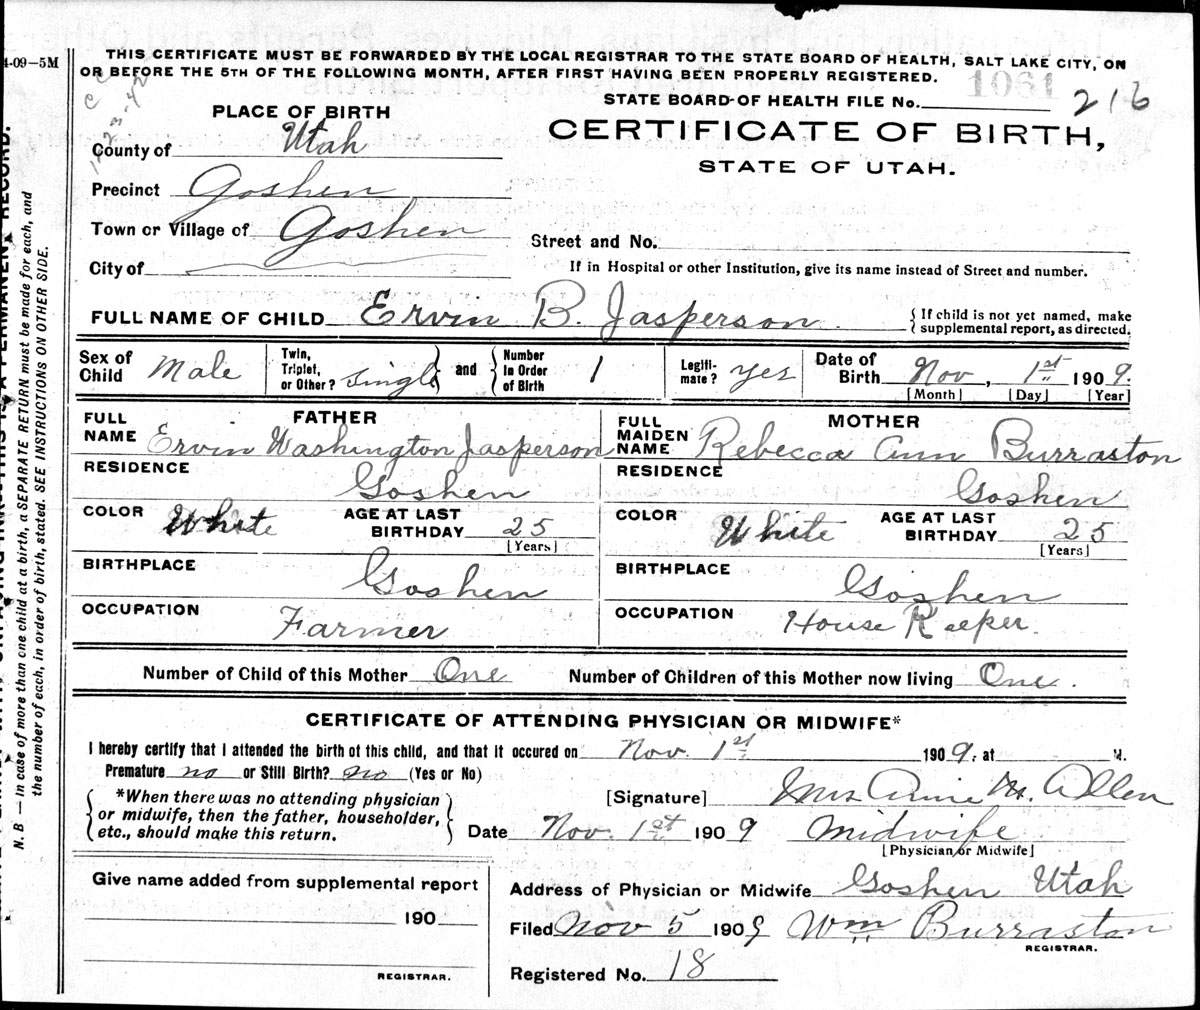 4-09—5M
THIS CERTIFICATE MUST BE FORWARDED BY THE LOCAL REGISTRAR TO THE STATE BOARD OF HEALTH, SALT LAKE CITY, ON
OR BEFORE THE 5TH OF THE FOLLOWING MONTH, AFTER FIRST HAVING BEEN PROPERLY REGISTERED.
1061
STATE BOARD OF HEALTH FILE No. 216
PLACE OF BIRTH
CERTIFICATE OF BIRTH,
STATE OF UTAH.
County of Utah
Precinct Goshen
Town or Village of Goshen
Street and No.
City of
If in Hospital or other Institution, give its name instead of Street and number.
FULL NAME OF CHILD Ervin B. Jasperson
{ If child is not yet named, make
supplemental report, as directed.
Sex of Child Male
Twin, Triplet, or Other? Single } and { Number in Order of Birth 1
Legitimate? Yes
Date of Birth Nov, 1st 1909.
[Month] [Day] [Year]
FATHER
FULL NAME Ervin Washington Jasperson
RESIDENCE Goshen
COLOR White
AGE AT LAST BIRTHDAY 25
[Years]
BIRTHPLACE Goshen
OCCUPATION Farmer
MOTHER
FULL MAIDEN NAME Rebecca Ann Burraston
RESIDENCE Goshen
COLOR White
AGE AT LAST BIRTHDAY 25
[Years]
BIRTHPLACE Goshen
OCCUPATION House Keeper.
Number of Child of this Mother One Number of Children of this Mother now living One.
CERTIFICATE OF ATTENDING PHYSICIAN OR MIDWIFE*
I hereby certify that I attended the birth of this child, and that it occured on Nov. 1st 1909. at M.
Premature no or Still Birth? no (Yes or No)
{ *When there was no attending physician
or midwife, then the father, householder,
etc., should make this return. }
[Signature] Mrs Annie M. Allen
Date Nov. 1st 1909 Midwife
[Physician or Midwife]
Give name added from supplemental report
190
REGISTRAR.
Address of Physician or Midwife Goshen Utah
Filed Nov 5 1909 Wm Burraston
REGISTRAR.
Registered No. 18
N. B — In case of more than one child at a birth, a SEPARATE RETURN must be made for each, and
the number of each, in order of birth, stated. SEE INSTRUCTIONS ON OTHER SIDE.